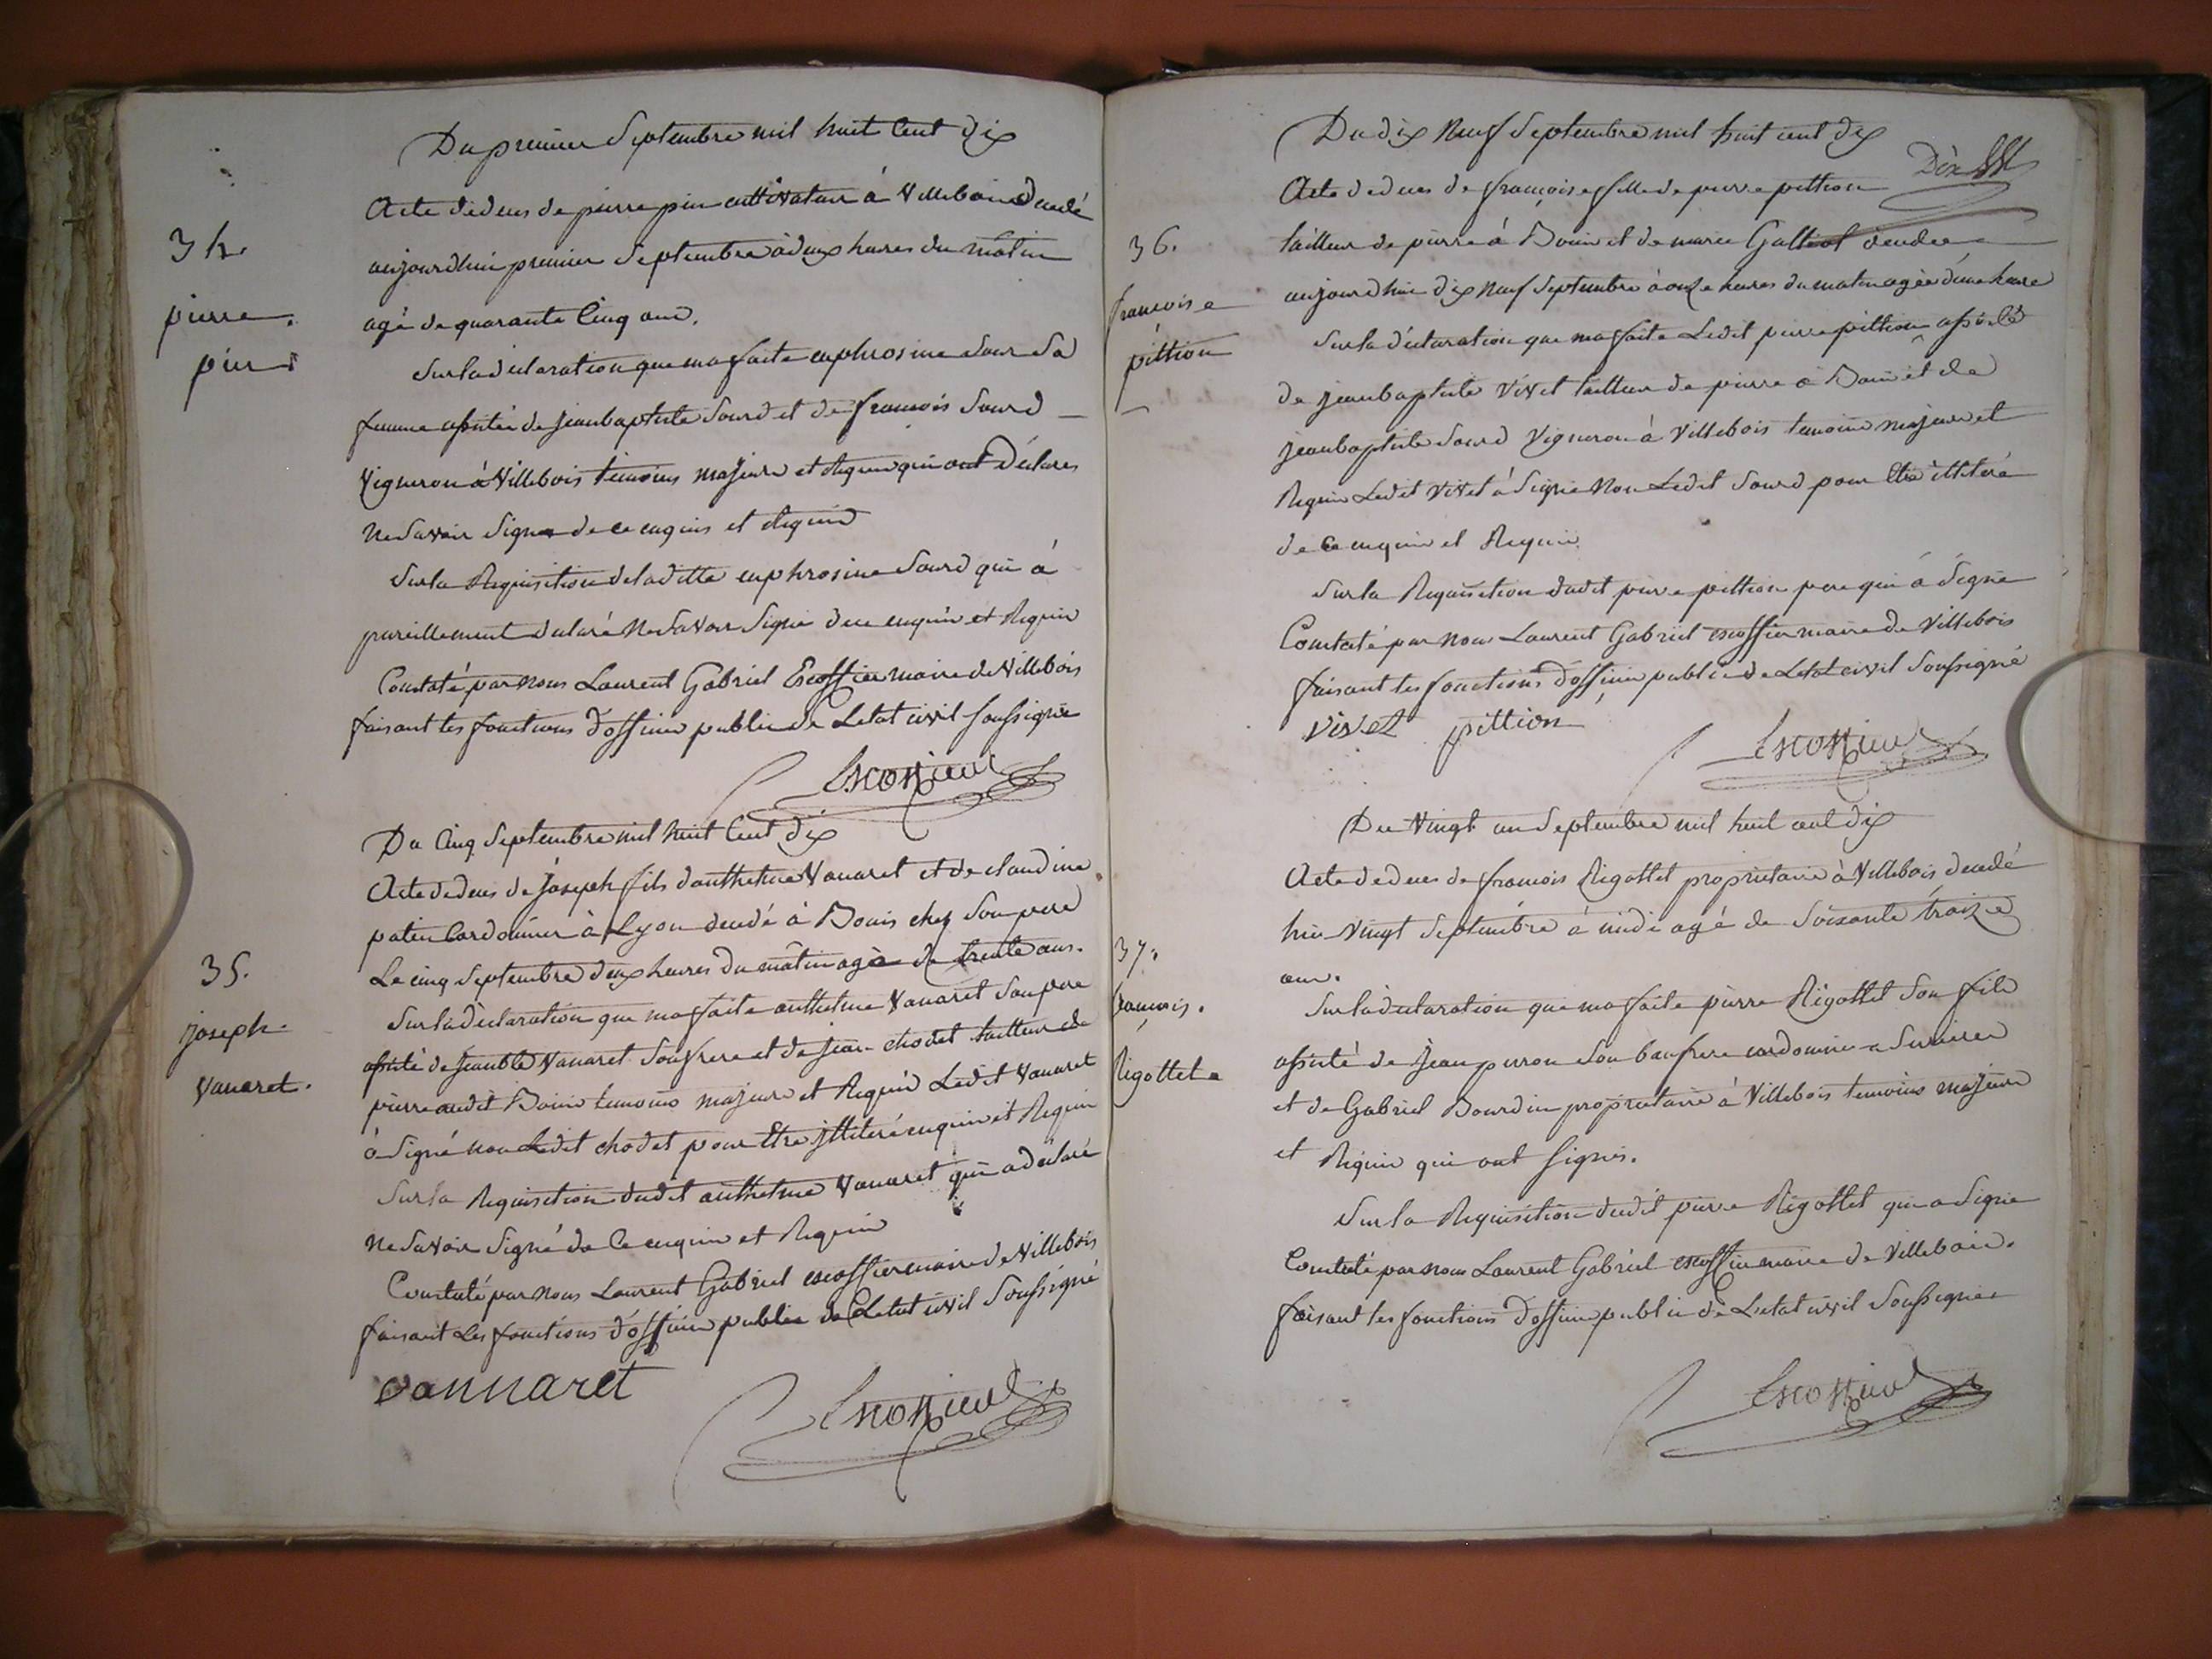 Du premier Septembre mil huit Cent dix
34.
pierre
Acte de deces de pierre cultivateur à Villebois décédé
aujourdhui premier Septembre à deux heures du matin
agé de quarante Cinq ans.
Sur la déclaration que ma faite euphrosine Sourd Sa
femme assistée de jeanbaptiste Sourd et de françois Sourd
Vignerons à Villebois temoins majeurs et Requis qui ont Déclarés
ne Savoir Signer de ce enquis et Requis
Sur la Requisition de laditte euphrosine Sourd qui à
pareillement declaré ne Savoir Signé de ce enquis et Requis
Constaté par nous Laurent Gabriel Escoffier maire de Villebois
faisant les fonctions D'officier public de Letat civil Soussigné
Escoffier
Du Cinq Septembre mil huit Cent dix
35.
joseph
vanaret.
Acte de deces de joseph fils danthelme Vanaret et de claudine
patin Cordonnier à Lyon decedé à Bouis chez Son pere
Le cinq Septembre deux heures du matin agé de trente ans.
Sur la déclaration que ma faite anthelme Vanaret Son pere
assisté de jeanbte Vanaret Son frere et de jean chodet tailleur de
pierre audit Bouis temoins majeurs et Requis Ledit Vanaret
à Signé non Ledit chodet pour Etre jlliteré enquis et Requis
Sur la Requisition dudit anthelme Vanaret qui a déclaré
ne Savoir Signé de Ce enquis et Requis
Constaté par nous Laurent Gabriel escoffier maire de Villebois
faisant Les fonctions d'officier public de Letat civil Soussigné
vannaret
Escoffier
Du dix Neuf Septembre mil huit cent dix
36.
francoise
pittion
Acte de deces de françoise fille de pierre pittion
tailleur de pierre à Bouis et de marie Galliot decedee
aujourdhui dix Neuf Septembre à onze heures du matin agée d'une heure
Sur la déclaration que ma faite Ledit pierre pittion assisté
de jeanbaptiste Vivet tailleur de pierre à Bouis et de
jeanbaptiste Sourd Vigneron à Villebois temoins majeurs et
Requis Ledit Vivet à Signé Non Ledit Sourd pour Etre illiteré
de Ce enquis et Requis.
Sur la Requisition dudit pierre pittion pere qui à Signé
Constaté par nous Laurent Gabriel escoffier maire de Villebois
faisant les fonctions D'officier public de Letat civil Soussigné
vivet pittion
Escoffier
Du Vingt un Septembre mil huit cent dix
37.
francois.
Rigottet
Acte de deces de francois Rigottet proprietaire à Villebois decedé
hier Vingt Septembre à midi agé de Soixante traize
ans.
Sur la déclaration que ma faite pierre Rigottet Son fils
assisté de jean perron Son beaufrere cordonnier a
et de Gabriel Bourdin proprietaire à Villebois temoins majeurs
et Requis qui ont Signés.
Sur la Requisition dudit pierre Rigottet qui a Signé
Constaté par nous Laurent Gabriel escoffier maire de Villebois.
faisant les fonctions D'officier public de Letat civil Soussigné
Escoffier